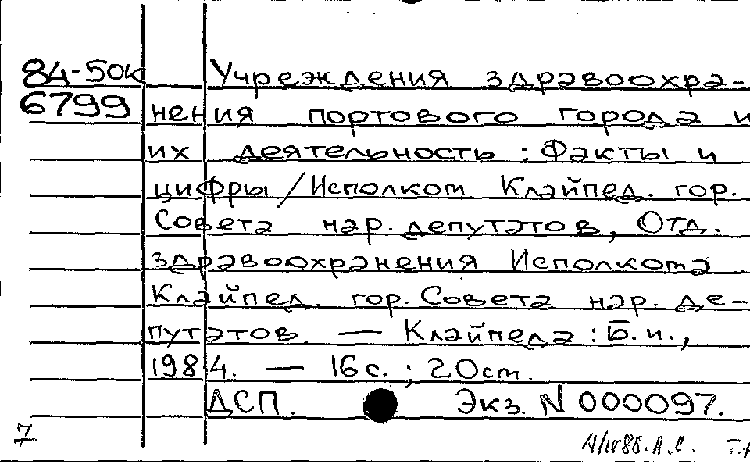 84-50к Учреждения здравоохра-
6799 нения портового города и
их деятельность : Факты и
цифры / Исполком Клайпед. гор.
Совета нар. депутатов, Отд.
здравоохранения Исполкома
Клайпед. гор. Совета нар. де-
путатов. — Клайпеда : Б. и.,
1984. — 16 с. ; 20 см.
ДСП. Экз. N 000097.
7